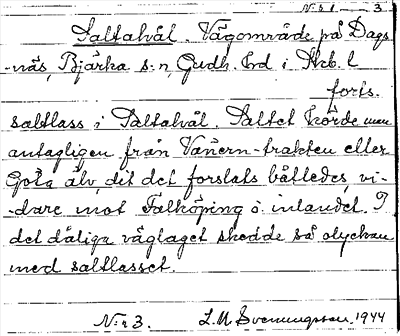 N:o 1 - 3
Saltahål. Vägområde på Dags
-näs, Bjärka s:n, Gudh. hd i Skb. l
forts.
saltlass i Saltahål. Saltet körde man
antagligen från Vänern-trakten eller
Göta älv, dit det forslats båtledes, vi-
-dare mot Falköping o. inlandet. I
det dåliga väglaget skedde så olyckan
med saltlasset.
N:r 3. L.M. Svenungsson. 1944